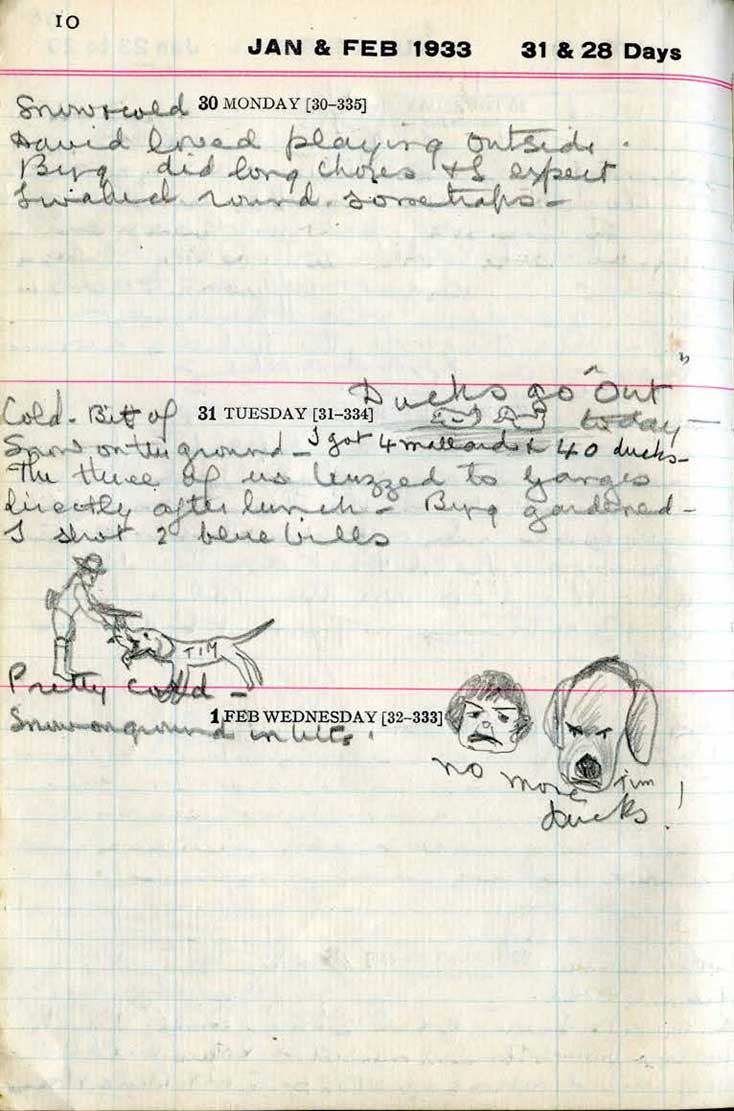 10
JAN & FEB 1933 31 & 28 Days
Snow & cold 30 MONDAY [30–335]
David loved playing outside.
Byng did long chores & I expect
I walked round some traps –
Ducks go "Out"
today –
Cold. Bit of 31 TUESDAY [31–334]
Snow on the ground – I got 4 mallards & 40 ducks –
The three of us buzzed to Ganges
directly after lunch – Byng gardened –
I shot 2 blue bills
TIM
Pretty cold –
1 FEB WEDNESDAY [32–333]
Snow on ground in bits.
no more Tim
ducks!